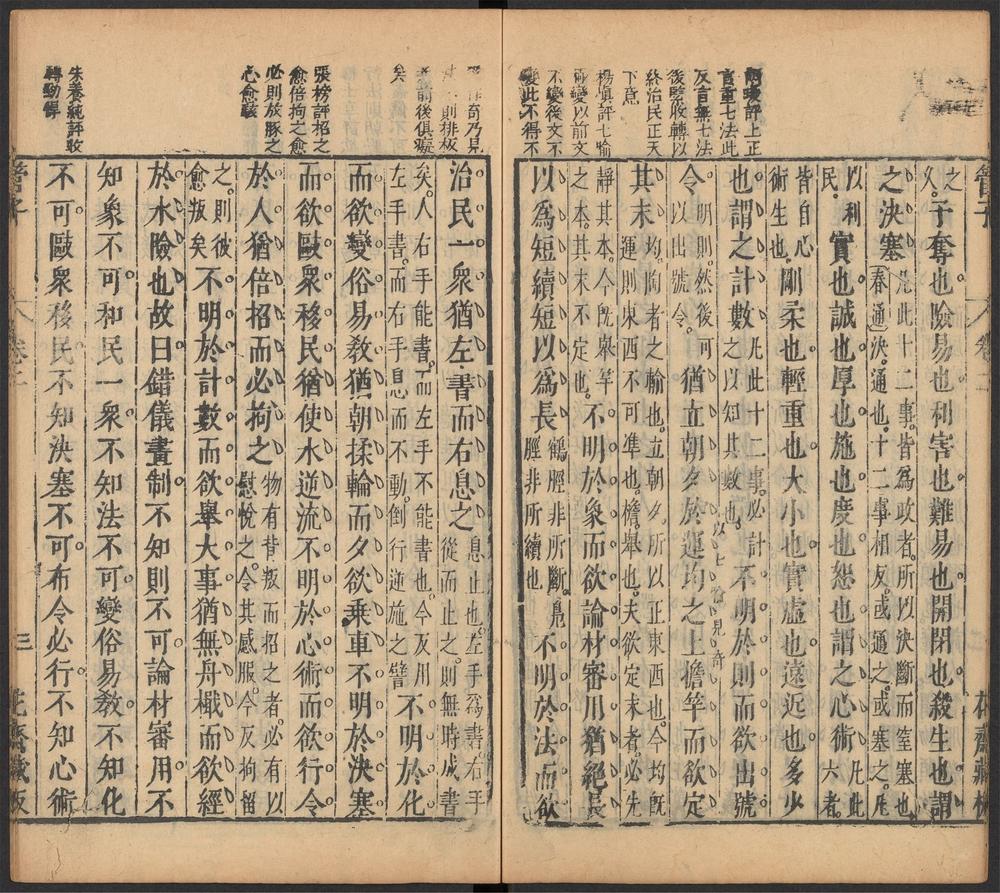 朱養純評上正
言重七法此
反言無七法
後監收轉以
終治民正天
下意
楊愼評七喻
兩變以前文
不變後文不
變此不得不
管子
卷二
花齋藏板
之
久子奪也險易也利害也難易也開閉也殺生也謂
之決塞凡此十二事皆爲政者所以決斷而窒塞也
春通決通也十二事相反或通之或塞之凡
以利
民實也誠也厚也施也度也恕也謂之心術凡此
六者
皆自心
術生也剛柔也輕重也大小也實虛也遠近也多少
也謂之計數凡此十二事必計
之以知其數也不明於則而欲出號
以七喻見奇
令明則然後可
以出號令猶立朝夕於運均之上擔竿而欲定
其末均陶者之輪也立朝夕所以正東西也今均既
運則東西不可準也檐舉也夫欲定末者必先
靜其本今既舉竿
之本其末不定也不明於象而欲論材審用猶絕長
以爲短續短以爲長鶴脛非所斷鳧
脛非所續也不明於法而欲
奇乃見
則排板
前後俱癡
矣
張榜評招之
愈倍拘之愈
必則放豚之
心愈駭
朱養純評收
轉勁悍
治民一衆猶左書而右息之息止也左手爲書右手
從而止之則無時成書
矣人右手能書而左手不能書也今反用
左手書而右手息而不動倒行逆施之譬不明於化
而欲變俗易敎猶朝揉輪而夕欲乘車不明於決塞
而欲敺衆移民猶使水逆流不明於心術而欲行令
於人猶倍招而必拘之物有背叛而招之者必有以
慰悅之令其感服今反拘留
之則彼
愈叛矣不明於計數而欲舉大事猶無舟檝而欲經
於水險也故曰錯儀畫制不知則不可論材審用不
知象不可和民一衆不知法不可變俗易敎不知化
不可敺衆移民不知決塞不可布令必行不知心術
管子
卷二
三
花齋藏板